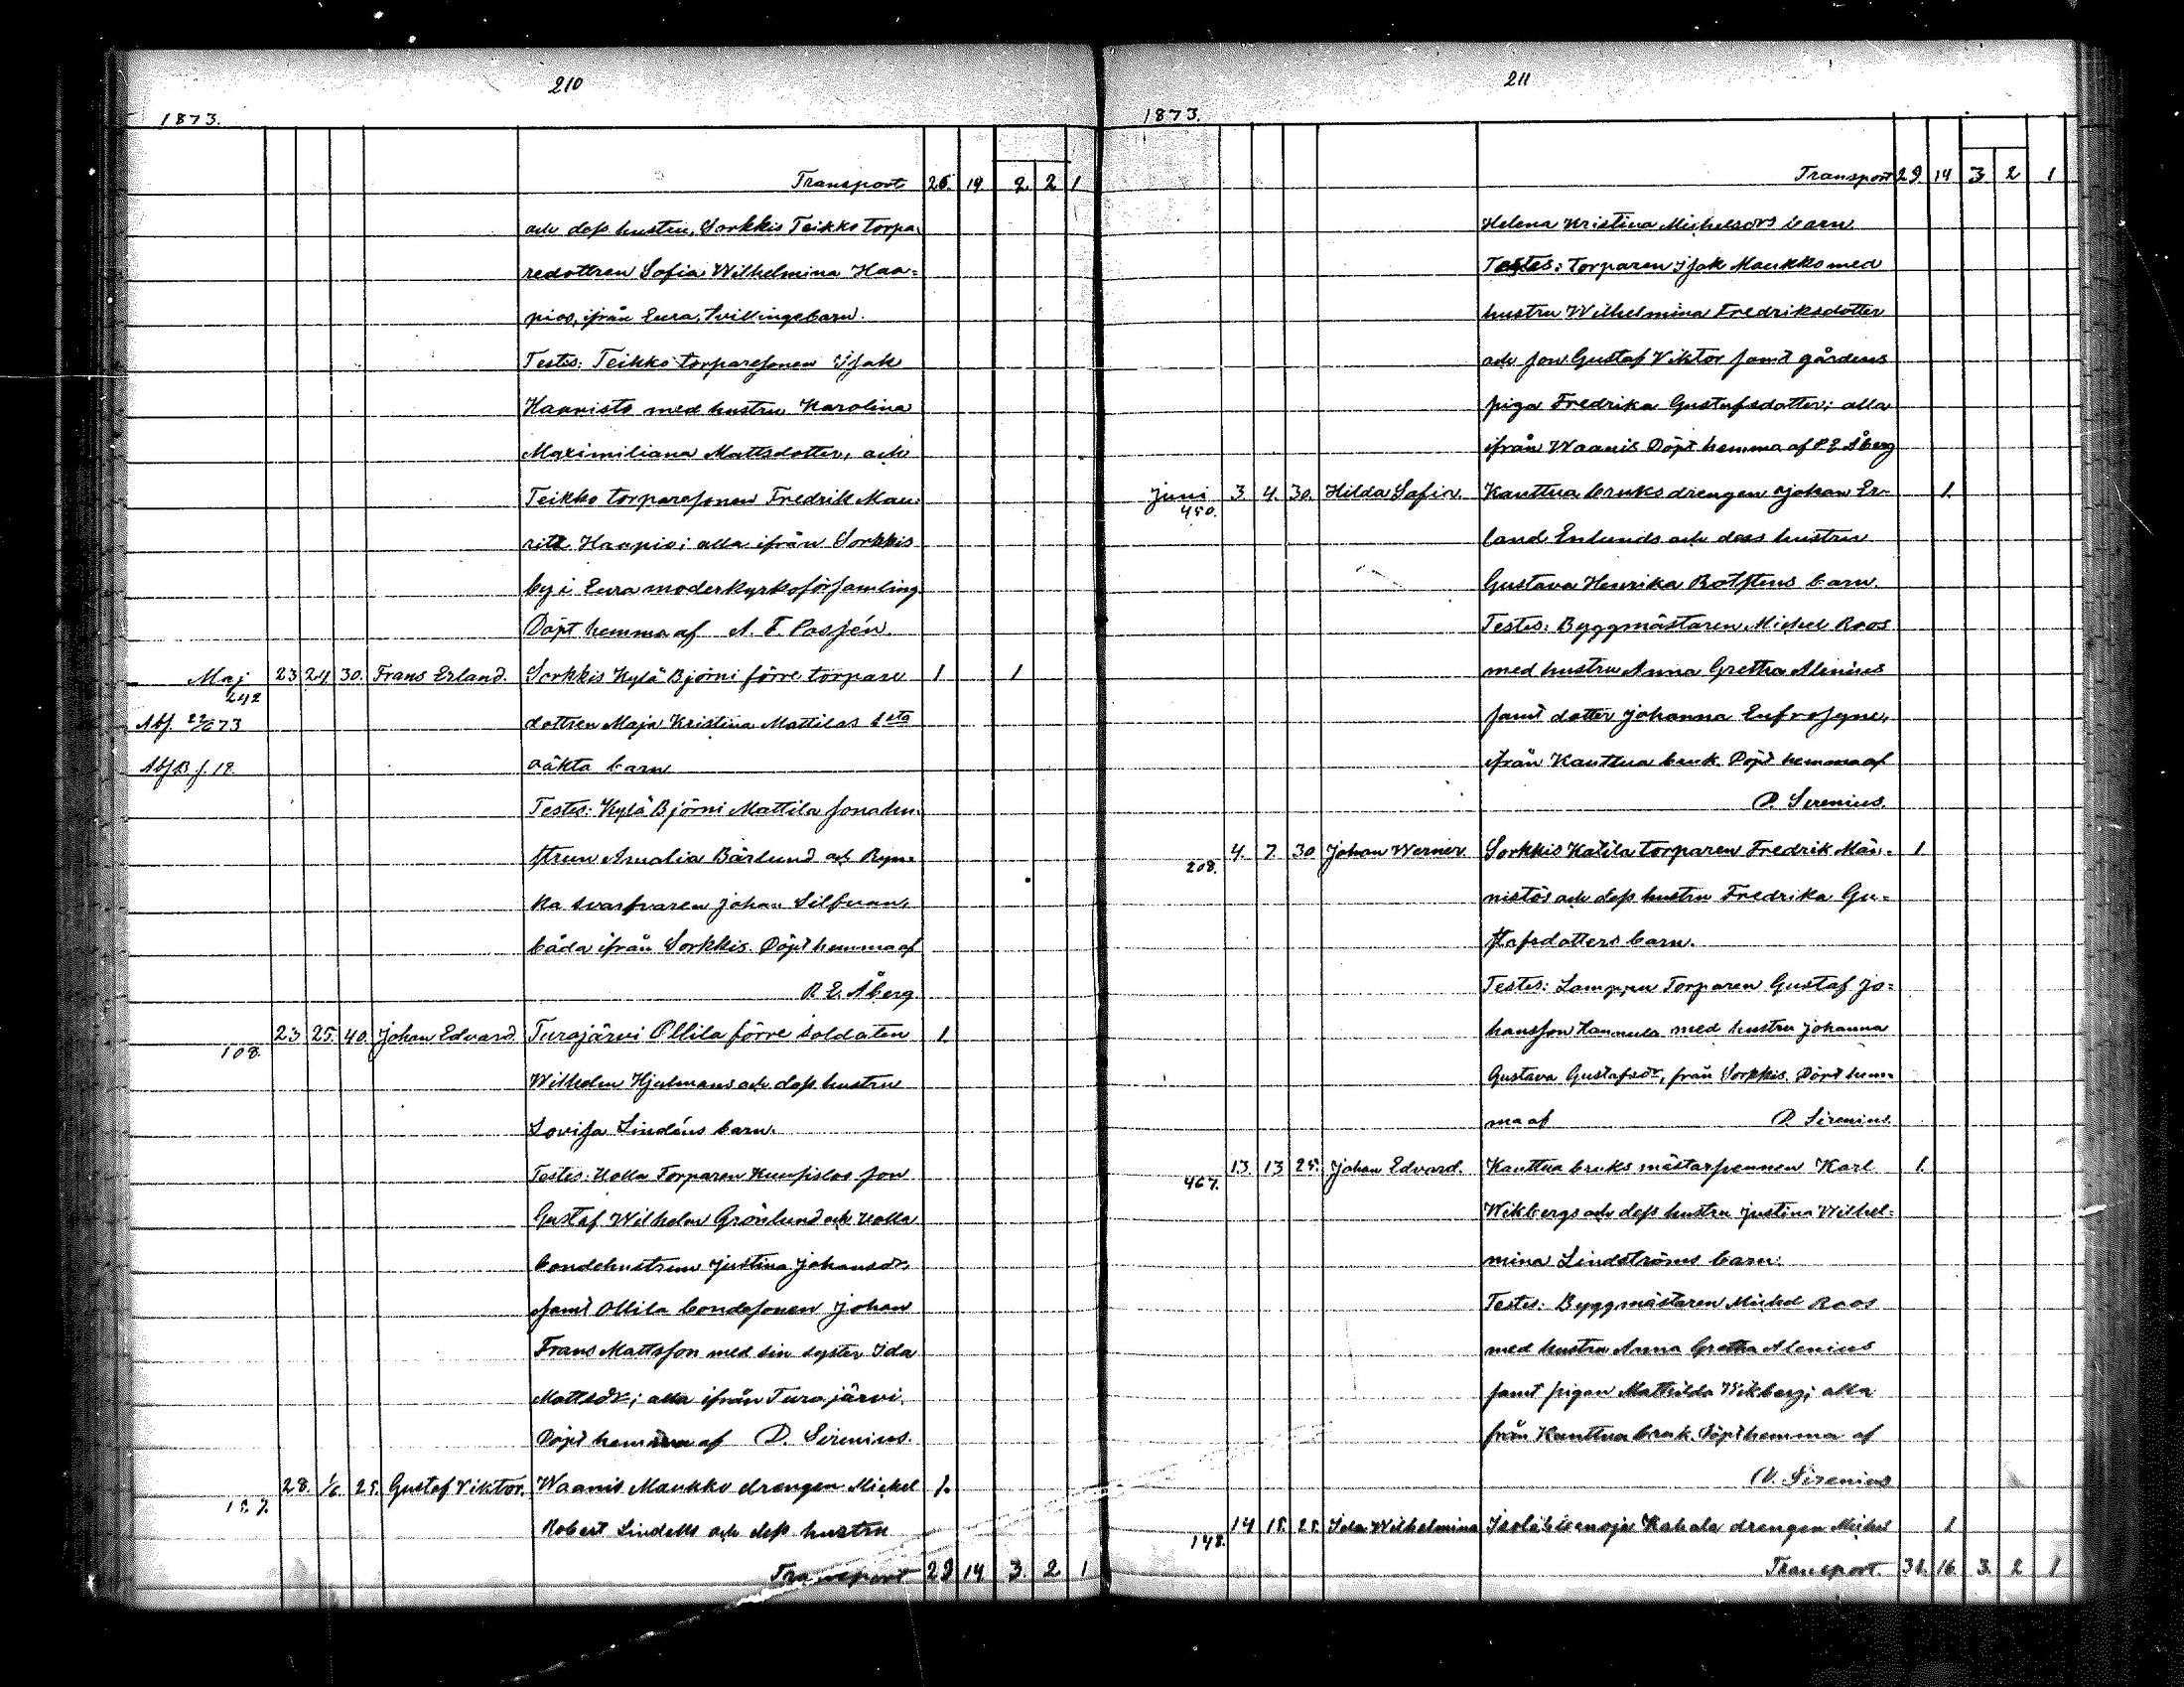 210
1873.
Transport 26. 14 2. 2 1
och dess hustru, Sorkkis Teikko torpa-
redottren Sofia Wilhelmina Haa-
pios, ifrån Eura, tvillingebarn.
Testes: Teikko torparesonen Isak
Haavisto med hustru Karolina
Maximiliana Mattsdotter, och
Teikko torparesonen Fredrik Mau-
ritz Haapio; alla ifrån Sorkkis
by i Eura moderkyrkoförsamling
Döpt hemma af A. F. Posjén.
Maj 23 24 30. Frans Erland. Sorkkis Kylä Björni förre torpare 1 1
242
Abf. 22/6 73 dottren Maja Kristina Mattilas 1sta
Abf B f. 19. oäkta barn
Testes: Kylä Björni Mattila sonahu-
strun Amalia Bärlund och Ryn-
ka svarfvaren Johan Silfvan,
båda ifrån Sorkkis. Döpt hemma af
R. E. Åberg
108. 23 25. 40. Johan Edvard. Turajärvi Ollila förre soldaten 1.
Wilhelm Hjelmans och dess hustru
Lovisa Lindéns barn.
Testes: Uolla Torparen son
Gustaf Wilhelm Grönlund och Uolla
bondehustrun Justina Johansdr,
samt Ollila bondesonen Johan
Frans Mattsson med sin syster Ida
Mattsdr; alla ifrån Turajärvi.
Döpt hemma af D. Sirenius.
157. 28. 1/6. 25. Gustaf Viktor. Waanis Maukko drengen Mickel 1.
Robert Lindells och dess hustru
Transport 29 14 3. 2 1
211
1873.
Transport 29. 14 3 2 1
Helena Kristina Michelsdrs barn
Testes: Torparen Isak Maukko med
hustru Wilhelmina Fredriksdotter
och son Gustaf Viktor samt gårdens
piga Fredrika Gustafsdotter; alla
ifrån Waanis Döpt hemma af R E Åberg
Juni 3 4. 30. Hilda Sofia. Kauttua bruks drengen Johan Er- 1.
450.
land Enlunds och dess hustru
Gustava Henrika Rotstens barn.
Testes: Byggmästaren Michel Roos
med hustru Anna Gretha Alenius
samt dotter Johanna Eufrosyne,
ifrån Kauttua bruk. Döpt hemma af
D. Sirenius.
208. 4. 7. 30 Johan Werner. Sorkkis Katila torparen Fredrik Män- 1.
nistös och dess hustru Fredrika Gu-
stafsdotters barn.
Testes: Lamppu Torparen Gustaf Jo-
hansson Hannula med hustru Johanna
Gustava Gustafsdr, från Sorkkis. Döpt hem-
ma af D. Sirenius.
467. 13. 13 25. Johan Edvard. Kauttua bruks mästarsvennen Karl 1.
Wikbergs och dess hustru Justina Wilhel-
mina Lindströms barn.
Testes: Byggmästaren Michel Roos
med hustru Anna Gretha Alenius
samt pigan Mathilda Wikberg; alla
från Kauttua bruk. Döpt hemma af
D. Sirenius
148. 14 15. 25. Ida Wilhelmina Kahala drengen Michel 1
Transport. 31. 16. 3. 2 1